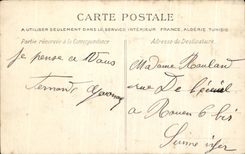 CARTE POSTALE
A UTILISER SEULEMENT DANS LE SERVICE INTÉRIEUR FRANCE, ALGÉRIE TUNISIE
Partie réservée à la Correspondance
Adresse du Destinataire
je pense a Vous
Fernande
Madame Roulard
rue De
a Rouen 6 bis
Seine infer